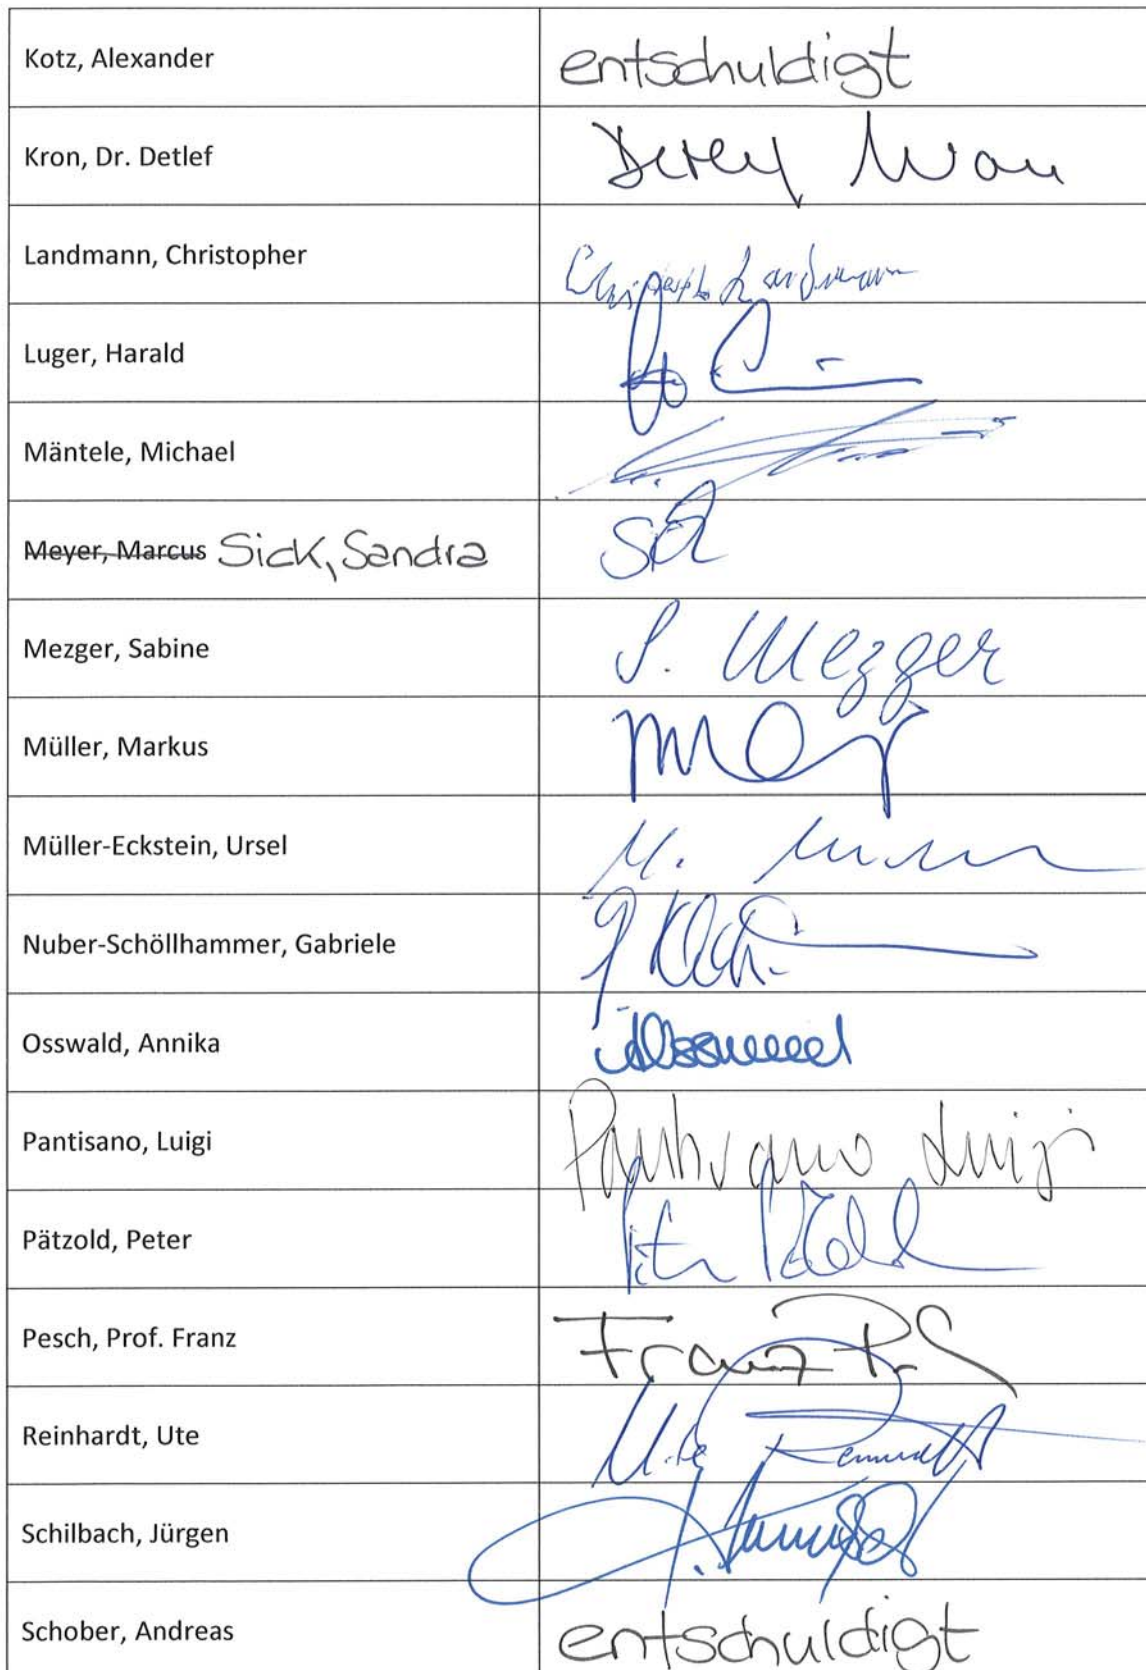 Kotz, Alexander entschuldigt
Kron, Dr. Detlef Detlef Kron
Landmann, Christopher Christopher Landmann
Luger, Harald
Mäntele, Michael
Meyer, Marcus Sick, Sandra Sick
Mezger, Sabine S. Mezger
Müller, Markus
Müller-Eckstein, Ursel
Nuber-Schöllhammer, Gabriele
Osswald, Annika AOsswald
Pantisano, Luigi Pantisano Luigi
Pätzold, Peter Peter Pätzold
Pesch, Prof. Franz Franz
Reinhardt, Ute Ute Reinhardt
Schilbach, Jürgen
Schober, Andreas entschuldigt